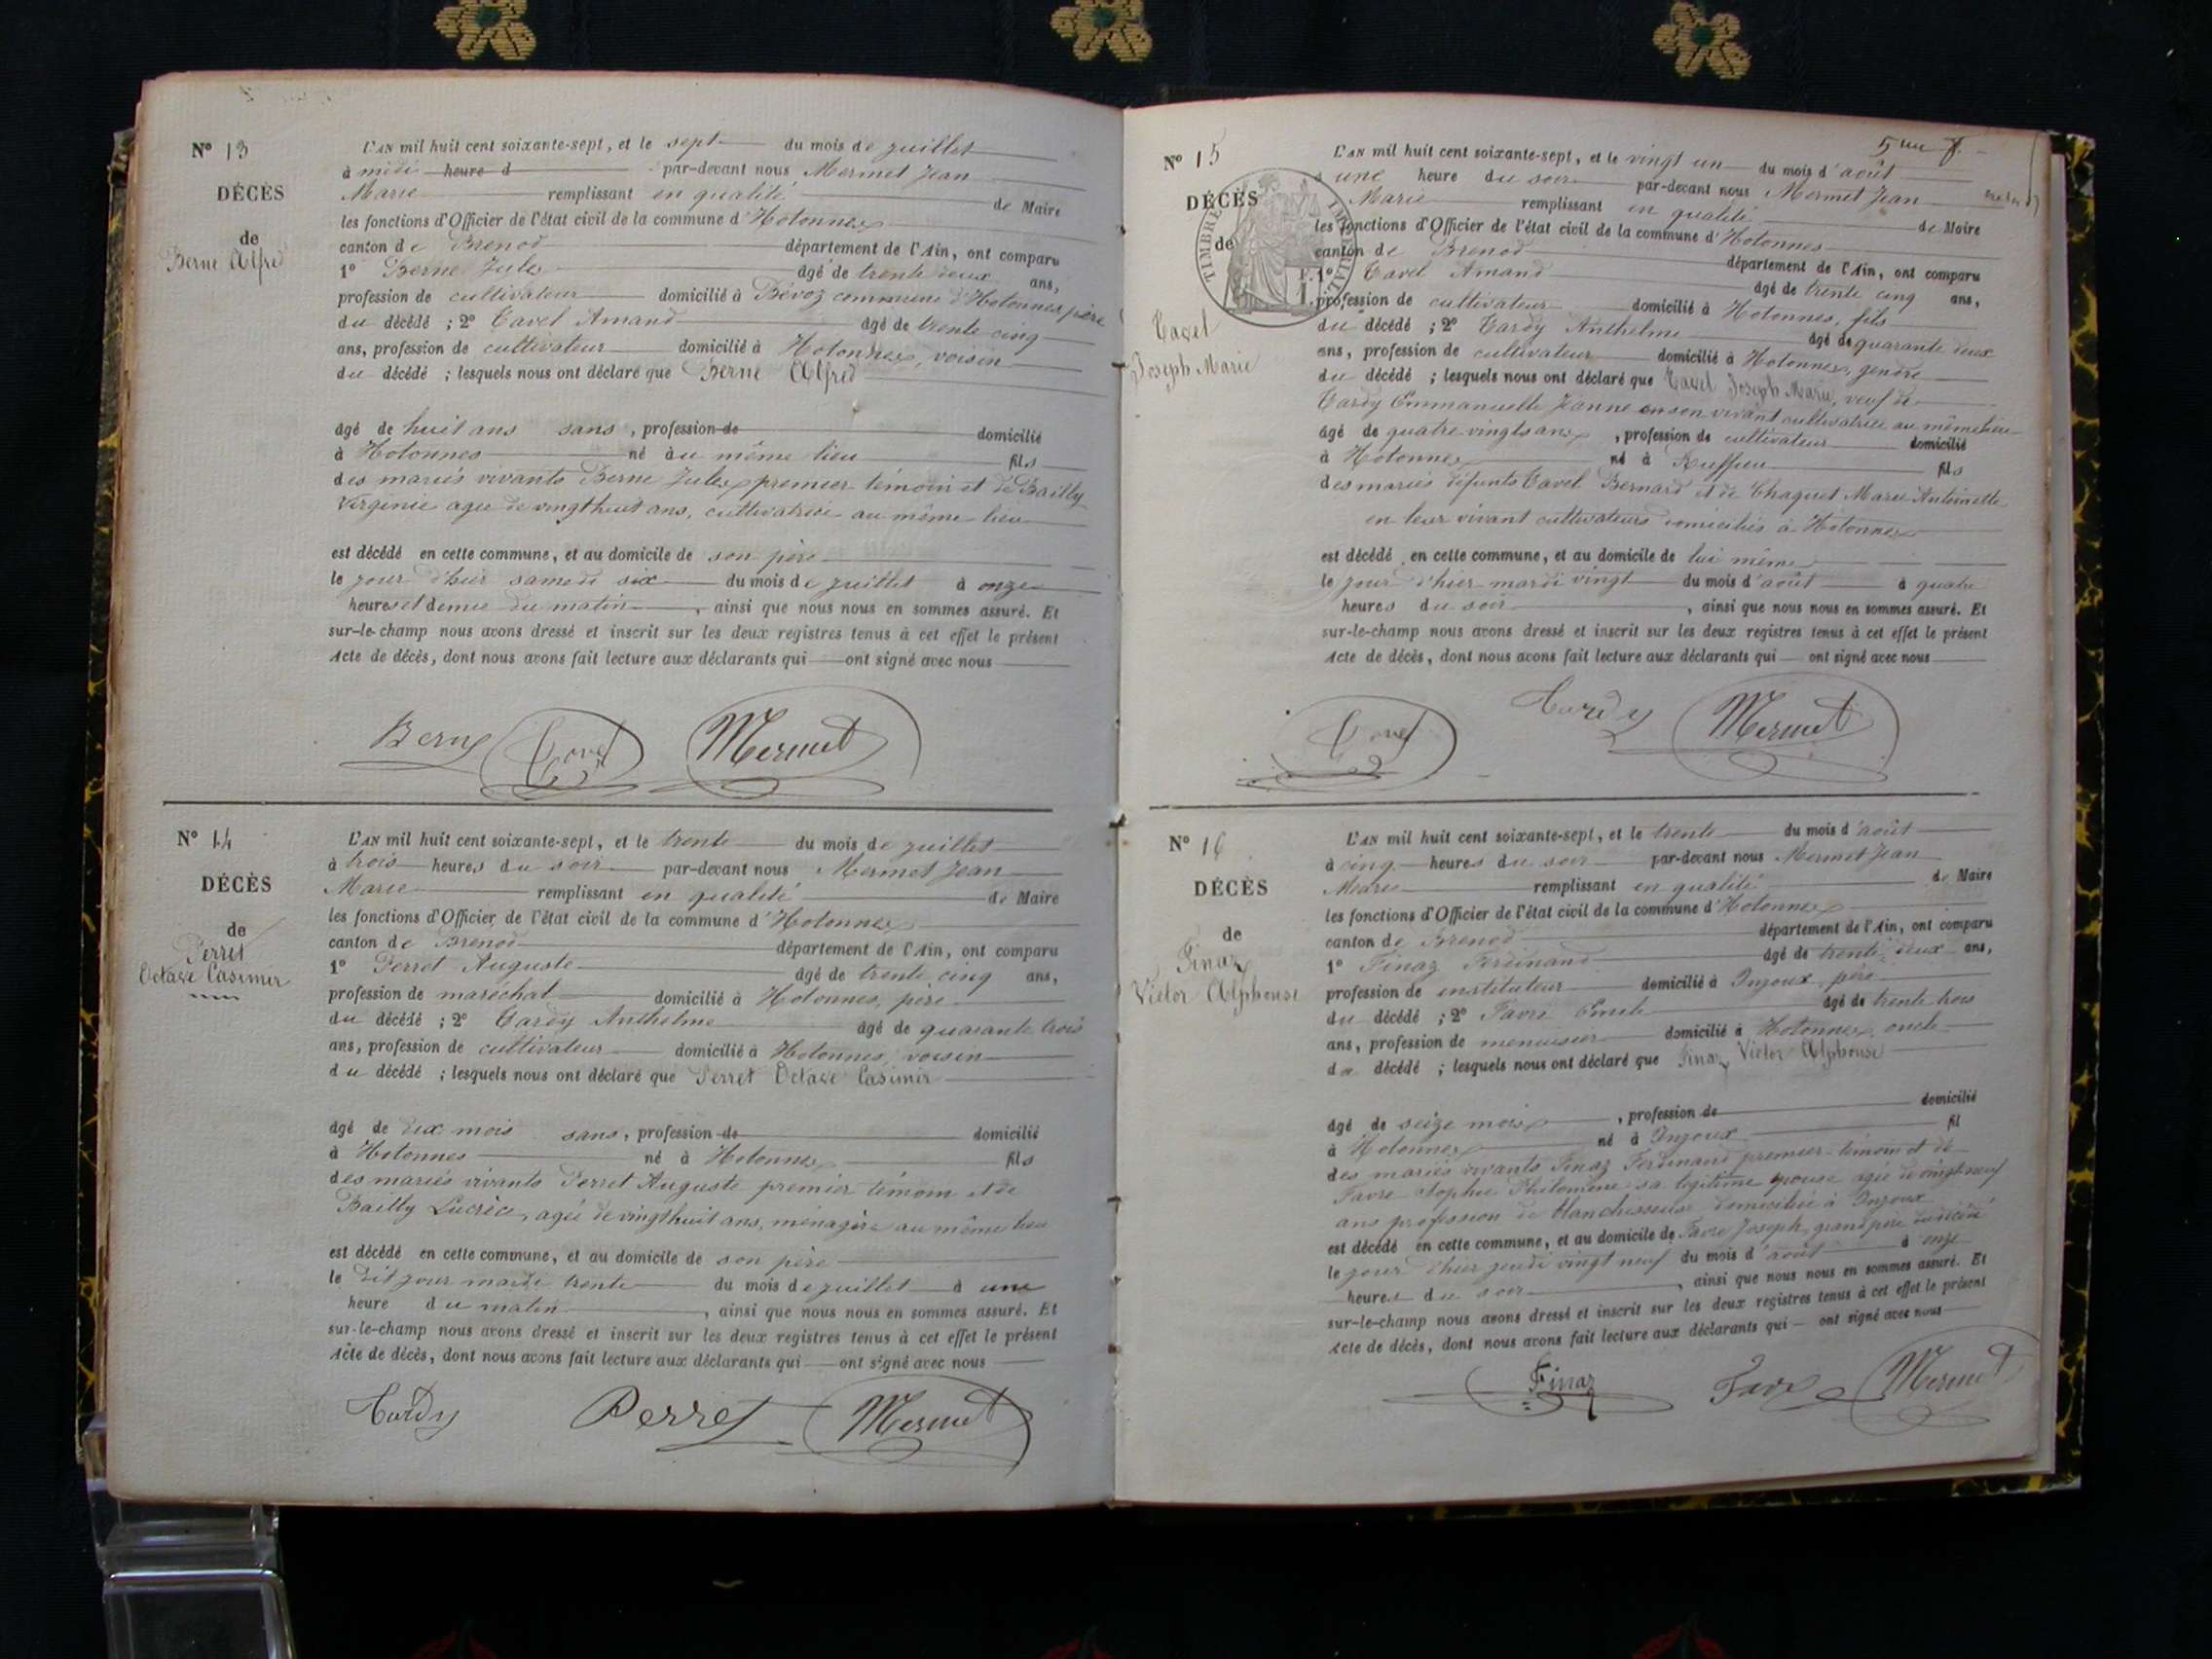 N° 13
DÉCÈS
de
Berne Alfred
L'AN mil huit cent soixante-sept, et le sept du mois de juillet
à midi heure d par-devant nous Mermet Jean
Marie remplissant en qualité de Maire
les fonctions d'Officier de l'état civil de la commune d'Hotonnes
canton de Brenod département de l'Ain, ont comparu
1° Berne Jules âgé de trente deux ans,
profession de cultivateur domicilié à Bévoz commune d'Hotonnes, père
du décédé ; 2° Cavel Amand âgé de trente cinq
ans, profession de cultivateur domicilié à Hotonnes, voisin
du décédé ; lesquels nous ont déclaré que Berne Alfred
âgé de huit ans sans, profession de domicilié
à Hotonnes né au même lieu fils
des mariés vivants Berne Jules premier témoin et de Bailly
Virginie agée de vingt huit ans, cultivatrice au même lieu
est décédé en cette commune, et au domicile de son père
le jour d'hier samedi six du mois de juillet à onze
heures et demie du matin, ainsi que nous nous en sommes assuré. Et
sur-le-champ nous avons dressé et inscrit sur les deux registres tenus à cet effet le présent
Acte de décès, dont nous avons fait lecture aux déclarants qui ont signé avec nous
Berne Cavel Mermet
N° 14
DÉCÈS
de
Perret
Octave Casimir
L'AN mil huit cent soixante-sept, et le trente du mois de juillet
à trois heures du soir par-devant nous Mermet Jean
Marie remplissant en qualité de Maire
les fonctions d'Officier de l'état civil de la commune d'Hotonnes
canton de Brenod département de l'Ain, ont comparu
1° Perret Auguste âgé de trente cinq ans,
profession de maréchal domicilié à Hotonnes, père
du décédé ; 2° Cardy Anthelme âgé de quarante trois
ans, profession de cultivateur domicilié à Hotonnes, voisin
du décédé ; lesquels nous ont déclaré que Perret Octave Casimir
âgé de dix mois sans, profession de domicilié
à Hotonnes né à Hotonnes fils
des mariés vivants Perret Auguste premier témoin et de
Bailly Lucrèce, agée de vingt huit ans, ménagère au même lieu
est décédé en cette commune, et au domicile de son père
le dit jour mardi trente du mois de juillet à une
heure du matin, ainsi que nous nous en sommes assuré. Et
sur-le-champ nous avons dressé et inscrit sur les deux registres tenus à cet effet le présent
Acte de décès, dont nous avons fait lecture aux déclarants qui ont signé avec nous
Cardy Perret Mermet
N° 15
DÉCÈS
de
Cavel
Joseph Marie
TIMBRE IMPÉRIAL
L'AN mil huit cent soixante-sept, et le vingt un du mois d'août
à une heure du soir par-devant nous Mermet Jean
Marie remplissant en qualité de Maire
les fonctions d'Officier de l'état civil de la commune d'Hotonnes
canton de Brenod département de l'Ain, ont comparu
1° Cavel Amand âgé de trente cinq ans,
profession de cultivateur domicilié à Hotonnes, fils
du décédé ; 2° Cardy Anthelme âgé de quarante deux
ans, profession de cultivateur domicilié à Hotonnes, gendre
du décédé ; lesquels nous ont déclaré que Cavel Joseph Marie, veuf de
Cardy Emmanuelle Jeanne en son vivant cultivatrice au même lieu
âgé de quatre vingts ans, profession de cultivateur domicilié
à Hotonnes né à Ruffieu fils
des mariés défunts Cavel Bernard et de Chaquet Marie Antoinette
en leur vivant cultivateurs domiciliés à Hotonnes
est décédé en cette commune, et au domicile de lui même
le jour d'hier mardi vingt du mois d'août à quatre
heures du soir, ainsi que nous nous en sommes assuré. Et
sur-le-champ nous avons dressé et inscrit sur les deux registres tenus à cet effet le présent
Acte de décès, dont nous avons fait lecture aux déclarants qui ont signé avec nous
Cavel Cardy Mermet
N° 16
DÉCÈS
de
Finaz
Victor Alphonse
L'AN mil huit cent soixante-sept, et le trente du mois d'août
à cinq heures du soir par-devant nous Mermet Jean
Marie remplissant en qualité de Maire
les fonctions d'Officier de l'état civil de la commune d'Hotonnes
canton de Brenod département de l'Ain, ont comparu
1° Finaz Ferdinand âgé de trente deux ans,
profession de instituteur domicilié à Injoux, père
du décédé ; 2° Favre Emile âgé de trente trois
ans, profession de menuisier domicilié à Hotonnes, oncle
du décédé ; lesquels nous ont déclaré que Finaz Victor Alphonse
âgé de seize mois, profession de domicilié
à Hotonnes né à Injoux fil
des mariés vivants Finaz Ferdinand premier témoin et de
Favre Sophie Philomène sa légitime épouse agée de vingt neuf
ans profession de blanchisseuse domiciliée à Injoux
est décédé en cette commune, et au domicile de Favre Joseph, grand père du décédé
le jour d'hier jeudi vingt neuf du mois d'août à onze
heures du soir, ainsi que nous nous en sommes assuré. Et
sur-le-champ nous avons dressé et inscrit sur les deux registres tenus à cet effet le présent
Acte de décès, dont nous avons fait lecture aux déclarants qui ont signé avec nous
Finaz Favre Mermet